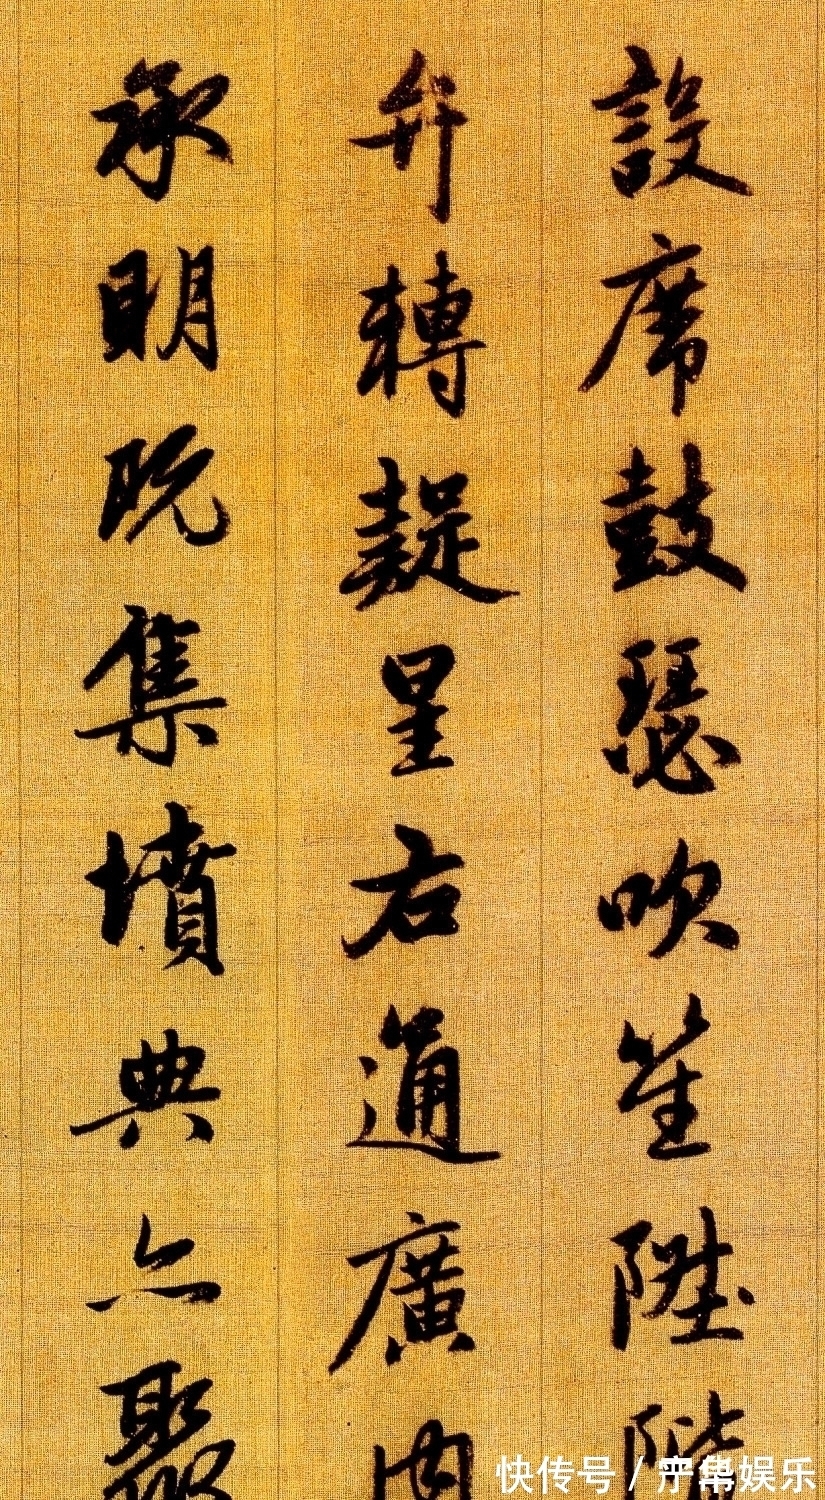 設席鼓瑟吹笙陞階
弁轉疑星右通廣内
承明既集墳典亦聚
快传号 / 娱乐